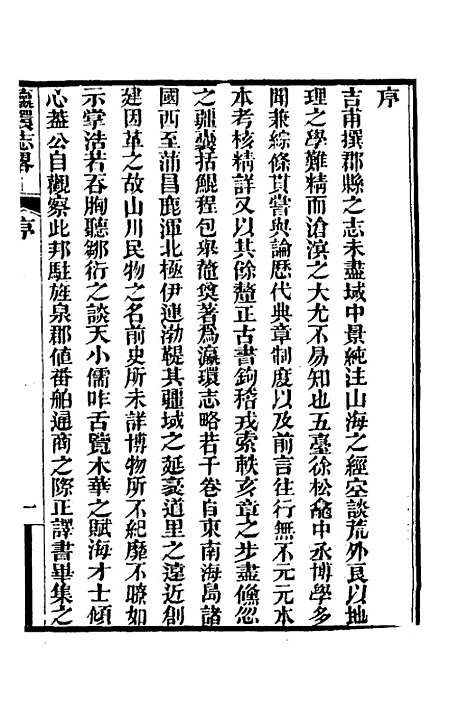 序
吉甫撰郡縣之志未盡域中景純注山海之經空談荒外良以地
理之學難精而滄溟之大尤不易知也五臺徐松龕中丞博學多
聞兼綜條貫嘗與論歷代典章制度以及前言往行無不元元本
本考核精詳又以其餘釐正古書鉤稽戎索軼亥章之步盡儵忽
之疆囊括鯤程包舉鼇奠著為瀛環志略若干卷自東南海島諸
國西至蒲昌鹿渾北極伊連渤鞮其疆域之延袤道里之遠近創
建因革之故山川民物之名前史所未詳博物所不紀靡不瞭如
示掌浩若吞胸聽鄒衍之談天小儒咋舌覽木華之賦海才士傾
心葢公自觀察此邦駐旌泉郡值番舶通商之際正譯書畢集之
瀛環志畧
序
一